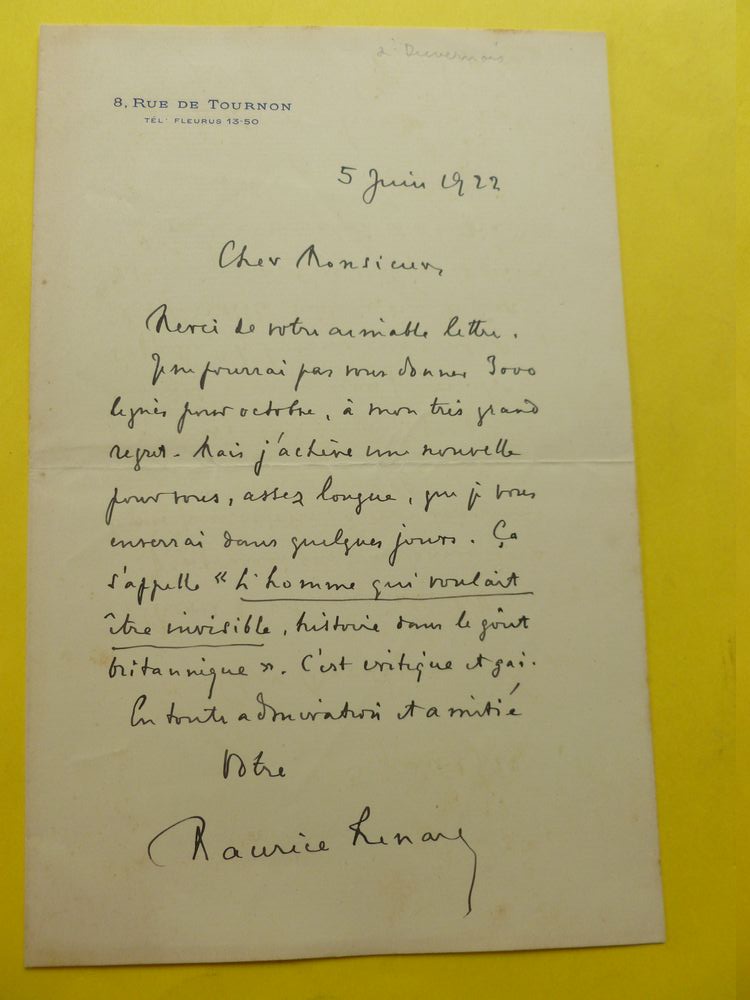 à Duvernois
8, RUE DE TOURNON
TÉL: FLEURUS 13-50
5 Juin 1922
Cher Monsieur,
Merci de votre aimable lettre.
Je ne pourrai pas vous donner 3000
lignes pour octobre, à mon très grand
regret. Mais j'achève une nouvelle
pour vous, assez longue, que je vous
enverrai dans quelques jours. Ça
s'appelle « L'homme qui voulait
être invisible, histoire dans le goût
britannique ». C'est critique et gai.
En toute admiration et amitié
Votre
Maurice Renard